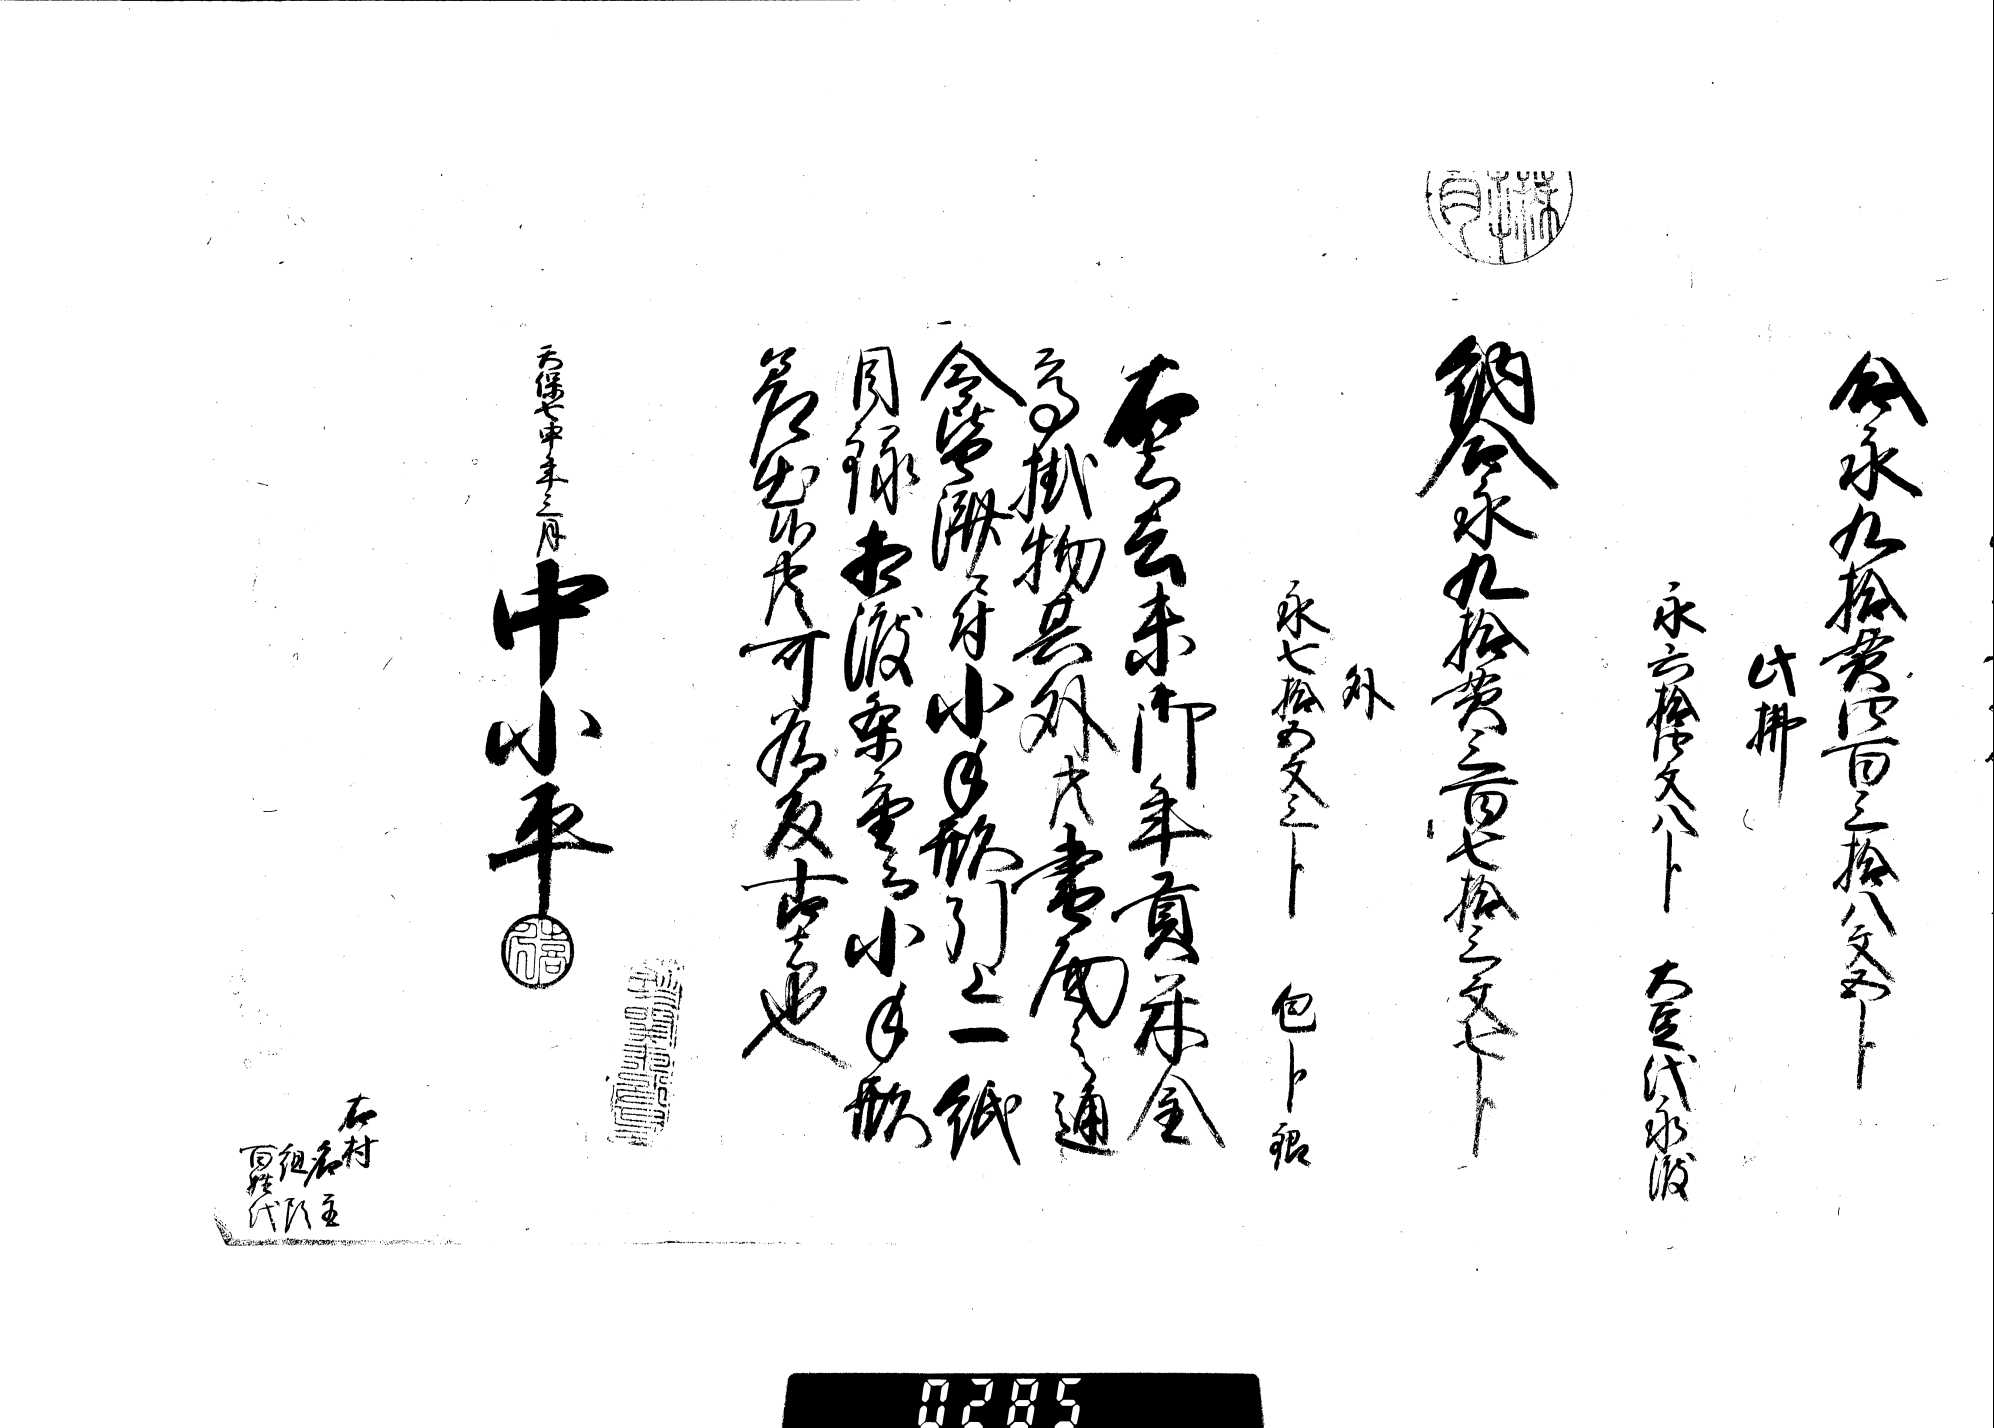 合永九拾貫四百三拾八文五卜
此拂
永六拾四文八卜 大豆代永渡
納合永九拾貫三百七拾三文七卜
外
永七拾五文三卜 包卜銀
右者去未御年貢米金
高掛物其外共書面之通
令皆済ニ付小手形引上一紙
目録相渡条重而小手形
差出候共可為反古者也
天保七申年三月
中小平
右村
名主
組頭
百姓代
0285